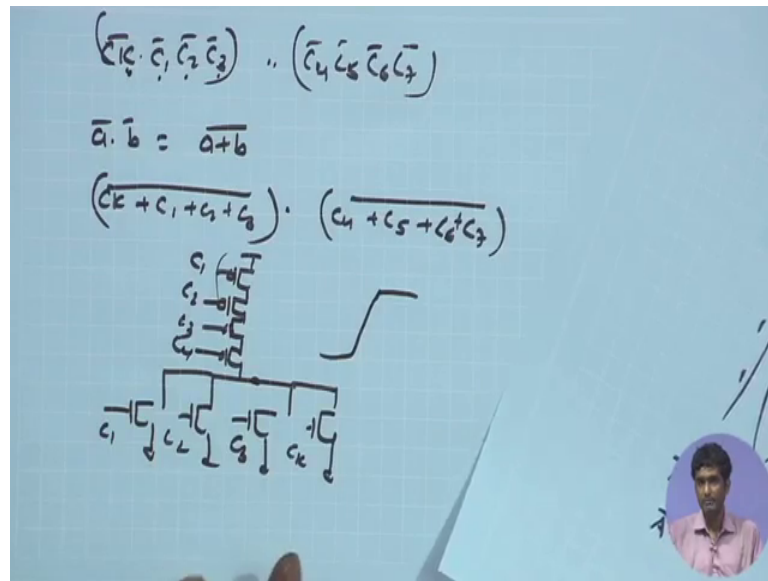 (C̅K̅ · C̅₁ C̅₂ C̅₃) ·· (C̅₄ C̅₅ C̅₆ C̅₇)
a̅ . b̅ = \overline{a+b}
(\overline{CK + C₁ + C₂ + C₃}) · (\overline{C₄ + C₅ + C₆ + C₇})
C₁
C₂
C₃
C₄
C₁ C₂ C₃ CK